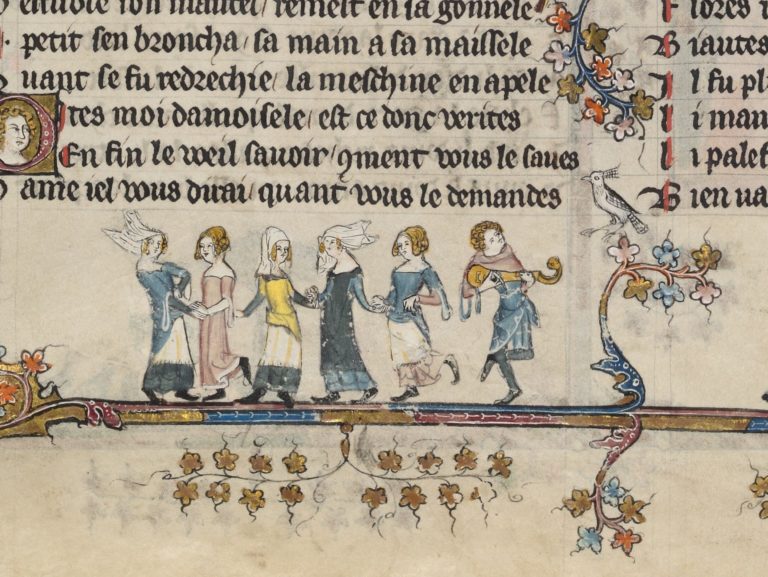 enuoie son mantel / remest en sa gonnele
petit sen broncha / sa main a sa maissele
uant se fu redrechie / la meschine en apele
D Ites moi damoisele / est ce donc verites
En fin le weil sauoir / qment vous le saues
ame iel vous dirai / quant vous le demandes
F lores i
B iautes
I l fu pl
L i mau
L i palef
B ien ua